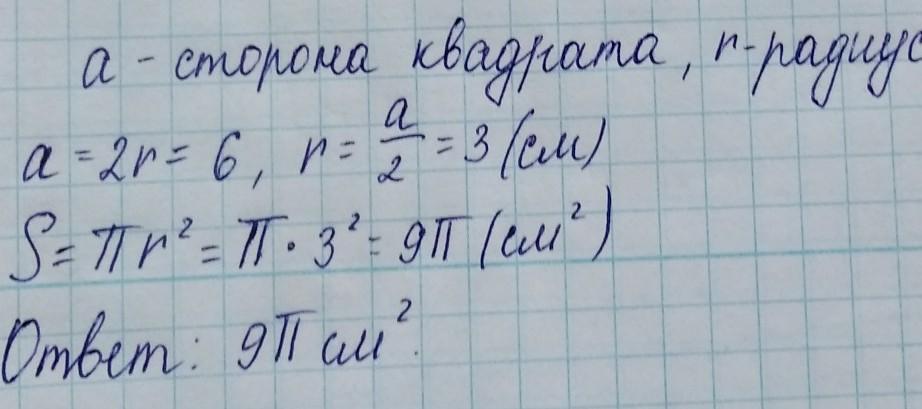 a - сторона квадрата, r - радиус
a = 2r = 6, r = a/2 = 3 (см)
S = πr² = π · 3² = 9π (см²)
Ответ: 9π см².